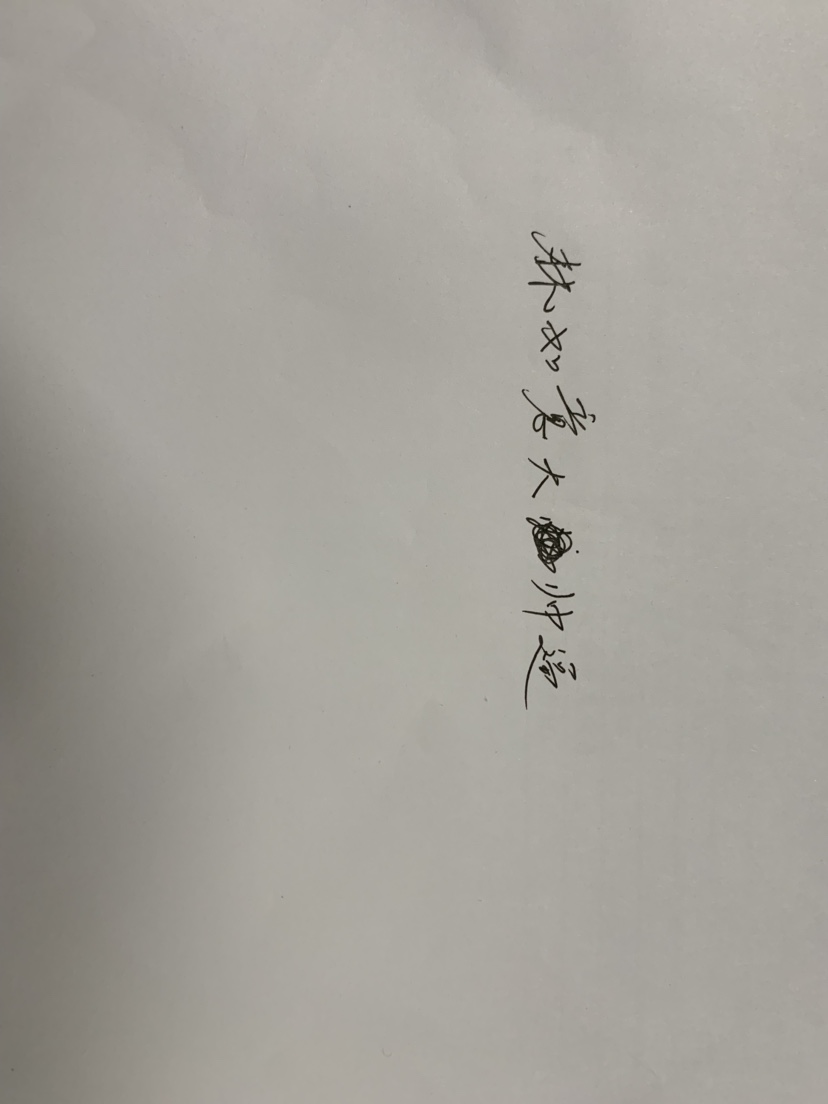 林如意大帅逼